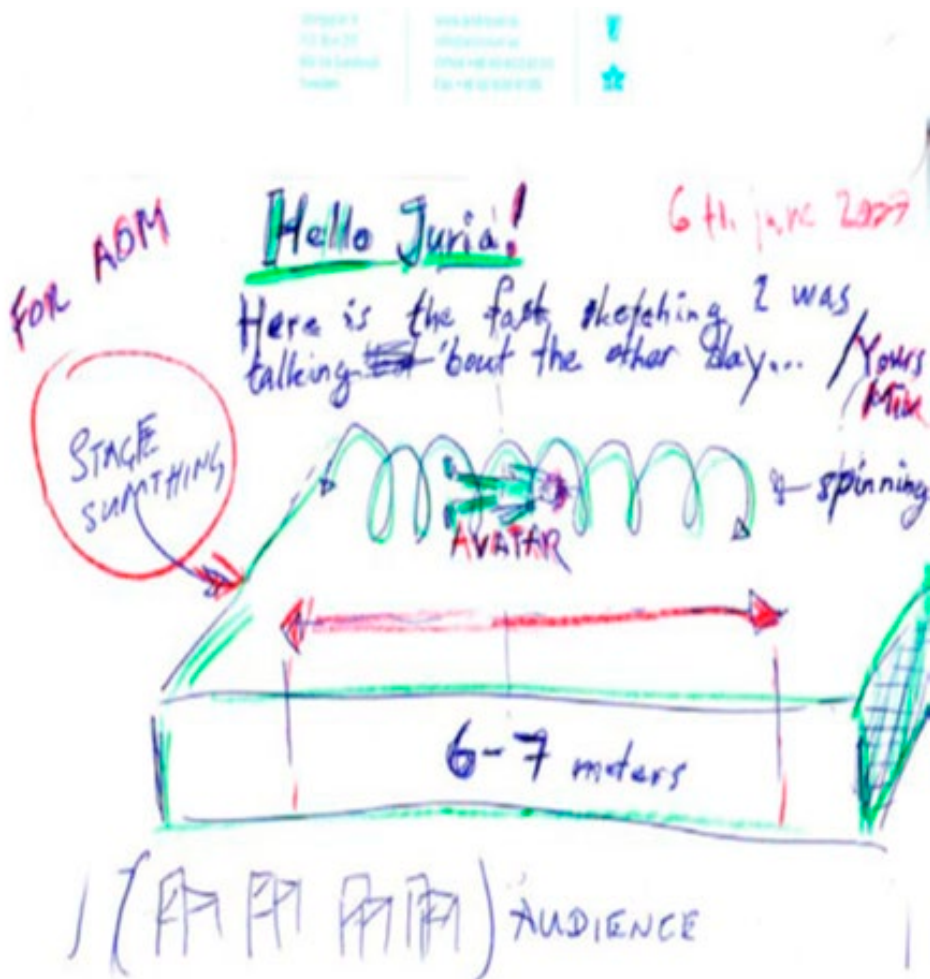 FOR ADM
Hello Juria!
6th june
Here is the fast sketching I was
talking 'bout the other day...
/Yours
STAGE
SUMTHING
spinning
AVATAR
6-7 meters
AUDIENCE